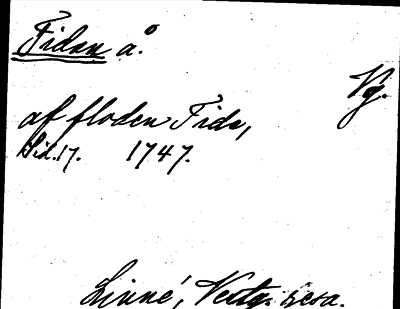 Fidan å.
Vg.
af floden Fida,
Sid. 17. 1747.
Linné, Vestg. resa.